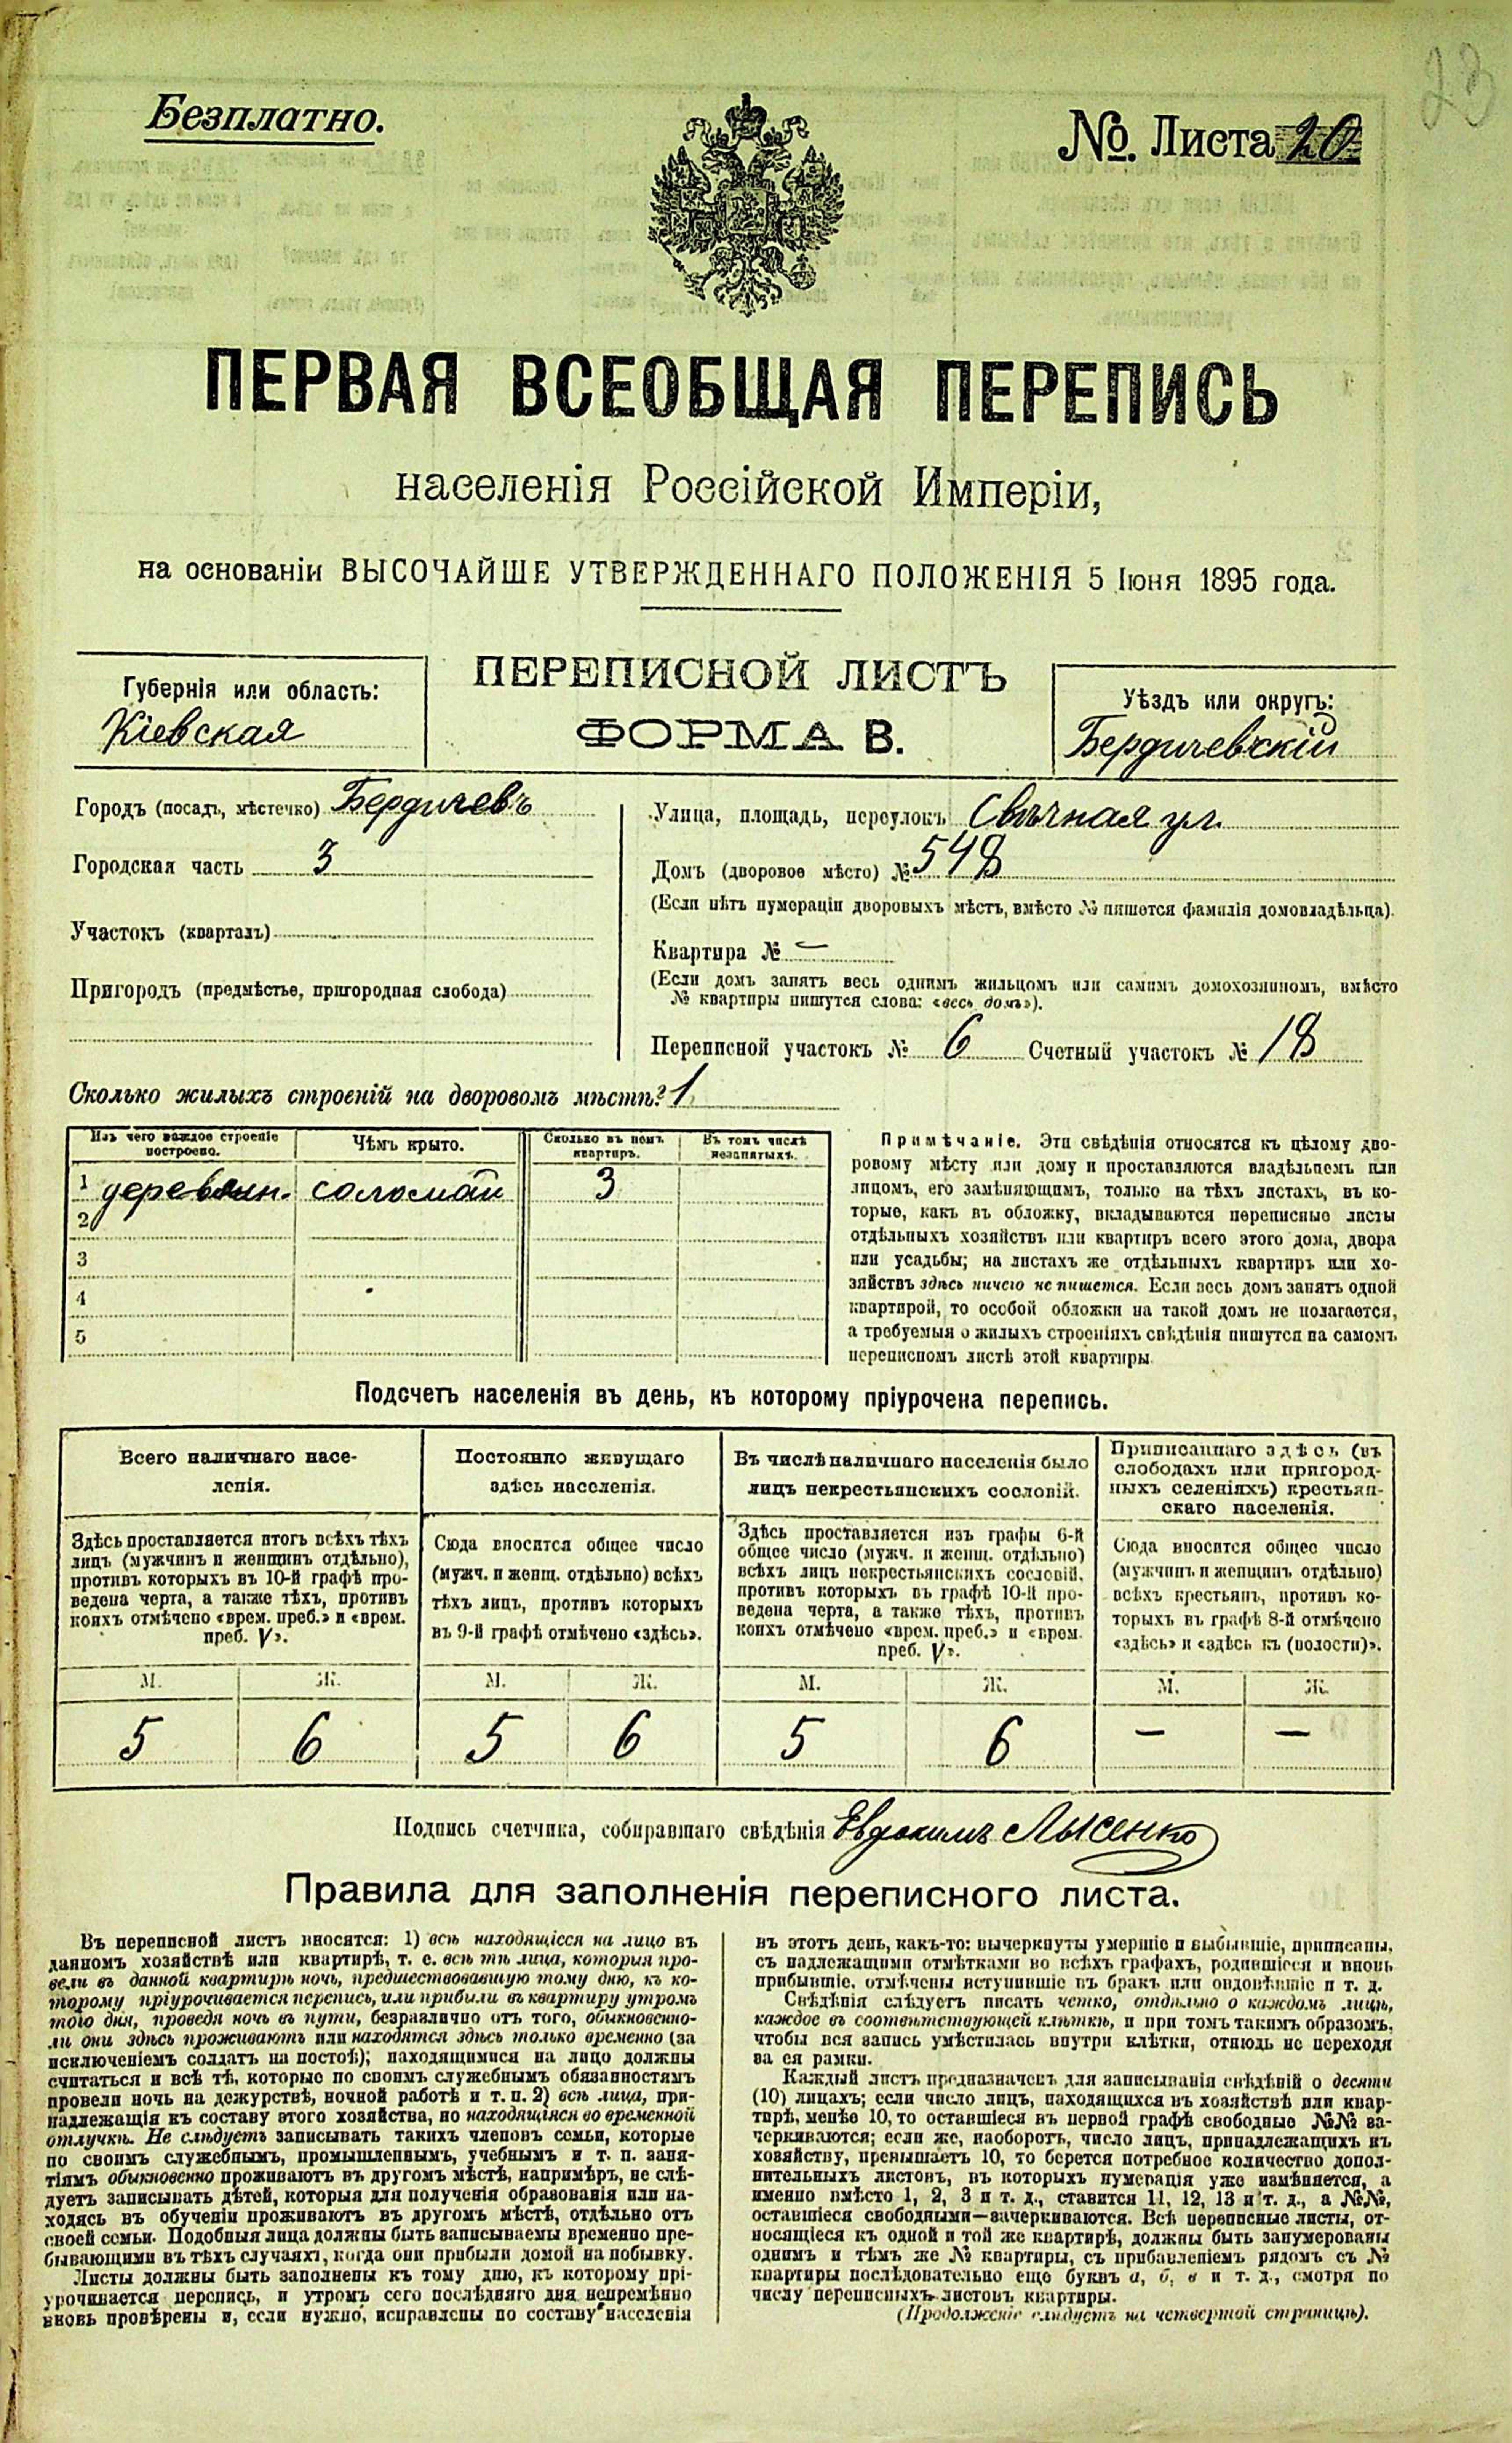 23
Безплатно.
№. Листа 20
ПЕРВАЯ ВСЕОБЩАЯ ПЕРЕПИСЬ
населенія Россійской Имперіи,
на основаніи ВЫСОЧАЙШЕ УТВЕРЖДЕННАГО ПОЛОЖЕНІЯ 5 Іюня 1895 года.
ПЕРЕПИСНОЙ ЛИСТЪ
ФОРМА В.
Губернія или область:
Кіевская
Уѣздъ или округъ:
Бердичевскій
Городъ (посадъ, мѣстечко) Бердичевъ
Городская часть 3
Участокъ (кварталъ)
Пригородъ (предмѣстье, пригородная слобода)
Улица, площадь, переулокъ Свѣчная ул.
Домъ (дворовое мѣсто) № 548
(Если нѣтъ нумераціи дворовыхъ мѣстъ, вмѣсто № пишется фамилія домовладѣльца).
Квартира № —
(Если домъ занятъ весь однимъ жильцомъ или самимъ домохозяиномъ, вмѣсто
№ квартиры пишутся слова: «весь домъ»).
Переписной участокъ № 6 Счетный участокъ № 18
Сколько жилыхъ строеній на дворовомъ мѣстѣ? 1
Изъ чего каждое строеніе
построено.
Чѣмъ крыто.
Сколько въ немъ
квартиръ.
Въ томъ числѣ
незанятыхъ.
1 деревян. соломой 3
2
3
4
5
Примѣчаніе. Эти свѣдѣнія относятся къ цѣлому дво-
ровому мѣсту или дому и проставляются владѣльцемъ или
лицомъ, его замѣняющимъ, только на тѣхъ листахъ, въ ко-
торые, какъ въ обложку, вкладываются переписные листы
отдѣльныхъ хозяйствъ или квартиръ всего этого дома, двора
или усадьбы; на листахъ же отдѣльныхъ квартиръ или хо-
зяйствъ здѣсь ничего не пишется. Если весь домъ занятъ одной
квартирой, то особой обложки на такой домъ не полагается,
а требуемыя о жилыхъ строеніяхъ свѣдѣнія пишутся на самомъ
переписномъ листѣ этой квартиры.
Подсчетъ населенія въ день, къ которому пріурочена перепись.
Всего наличнаго насе-
ленія.
Здѣсь проставляется итогъ всѣхъ тѣхъ
лицъ (мужчинъ и женщинъ отдѣльно),
противъ которыхъ въ 10-й графѣ про-
ведена черта, а также тѣхъ, противъ
коихъ отмѣчено «врем. преб.» и «врем.
преб. V».
Постоянно живущаго
здѣсь населенія.
Сюда вносится общее число
(мужч. и женщ. отдѣльно) всѣхъ
тѣхъ лицъ, противъ которыхъ
въ 9-й графѣ отмѣчено «здѣсь».
Въ числѣ наличнаго населенія было
лицъ некрестьянскихъ сословій.
Здѣсь проставляется изъ графы 6-й
общее число (мужч. и женщ. отдѣльно)
всѣхъ лицъ некрестьянскихъ сословій,
противъ которыхъ въ графѣ 10-й про-
ведена черта, а также тѣхъ, противъ
коихъ отмѣчено «врем. преб.» и «врем.
преб. V».
Приписаннаго здѣсь (въ
слободахъ или пригород-
ныхъ селеніяхъ) крестьян-
скаго населенія.
Сюда вносится общее число
(мужчинъ и женщинъ отдѣльно)
всѣхъ крестьянъ, противъ ко-
торыхъ въ графѣ 8-й отмѣчено
«здѣсь» и «здѣсь къ (волости)».
М. Ж. М. Ж. М. Ж. М. Ж.
5 6 5 6 5 6 — —
Подпись счетчика, собиравшаго свѣдѣнія Евдокимъ Лысенко
Правила для заполненія переписного листа.
Въ переписной листъ вносятся: 1) всѣ находящіеся на лицо въ
данномъ хозяйствѣ или квартирѣ, т. е. всѣ тѣ лица, которыя про-
вели въ данной квартирѣ ночь, предшествовавшую тому дню, къ ко-
торому пріурочивается перепись, или прибыли въ квартиру утромъ
того дня, проведя ночь въ пути, безразлично отъ того, обыкновенно-
ли они здѣсь проживаютъ или находятся здѣсь только временно (за
исключеніемъ солдатъ на постоѣ); находящимися на лицо должны
считаться и всѣ тѣ, которые по своимъ служебнымъ обязанностямъ
провели ночь на дежурствѣ, ночной работѣ и т. п. 2) всѣ лица, при-
надлежащія къ составу этого хозяйства, но находящіяся во временной
отлучкѣ. Не слѣдуетъ записывать такихъ членовъ семьи, которые
по своимъ служебнымъ, промышленнымъ, учебнымъ и т. п. заня-
тіямъ обыкновенно проживаютъ въ другомъ мѣстѣ, напримѣръ, не слѣ-
дуетъ записывать дѣтей, которыя для полученія образованія или на-
ходясь въ обученіи проживаютъ въ другомъ мѣстѣ, отдѣльно отъ
своей семьи. Подобныя лица должны быть записываемы временно пре-
бывающими въ тѣхъ случаяхъ, когда они прибыли домой на побывку.
Листы должны быть заполнены къ тому дню, къ которому прі-
урочивается перепись, и утромъ сего послѣдняго дня непремѣнно
вновь провѣрены и, если нужно, исправлены по составу населенія
въ этотъ день, какъ-то: вычеркнуты умершіе и выбывшіе, приписаны,
съ надлежащими отмѣтками во всѣхъ графахъ, родившіеся и вновь
прибывшіе, отмѣчены вступившіе въ бракъ или овдовѣвшіе и т. д.
Свѣдѣнія слѣдуетъ писать четко, отдѣльно о каждомъ лицѣ,
каждое въ соотвѣтствующей клѣткѣ, и при томъ такимъ образомъ,
чтобы вся запись умѣстилась внутри клѣтки, отнюдь не переходя
за ея рамки.
Каждый листъ предназначенъ для записыванія свѣдѣній о десяти
(10) лицахъ; если число лицъ, находящихся въ хозяйствѣ или квар-
тирѣ, менѣе 10, то оставшіеся въ первой графѣ свободные №№ за-
черкиваются; если же, наоборотъ, число лицъ, принадлежащихъ къ
хозяйству, превышаетъ 10, то берется потребное количество допол-
нительныхъ листовъ, въ которыхъ нумерація уже измѣняется, а
именно вмѣсто 1, 2, 3 и т. д., ставится 11, 12, 13 и т. д., а №№,
оставшіеся свободными—зачеркиваются. Всѣ переписные листы, от-
носящіеся къ одной и той же квартирѣ, должны быть занумерованы
однимъ и тѣмъ же № квартиры, съ прибавленіемъ рядомъ съ №
квартиры послѣдовательно еще буквъ а, б, в и т. д., смотря по
числу переписныхъ листовъ квартиры.
(Продолженіе слѣдуетъ на четвертой страницѣ).